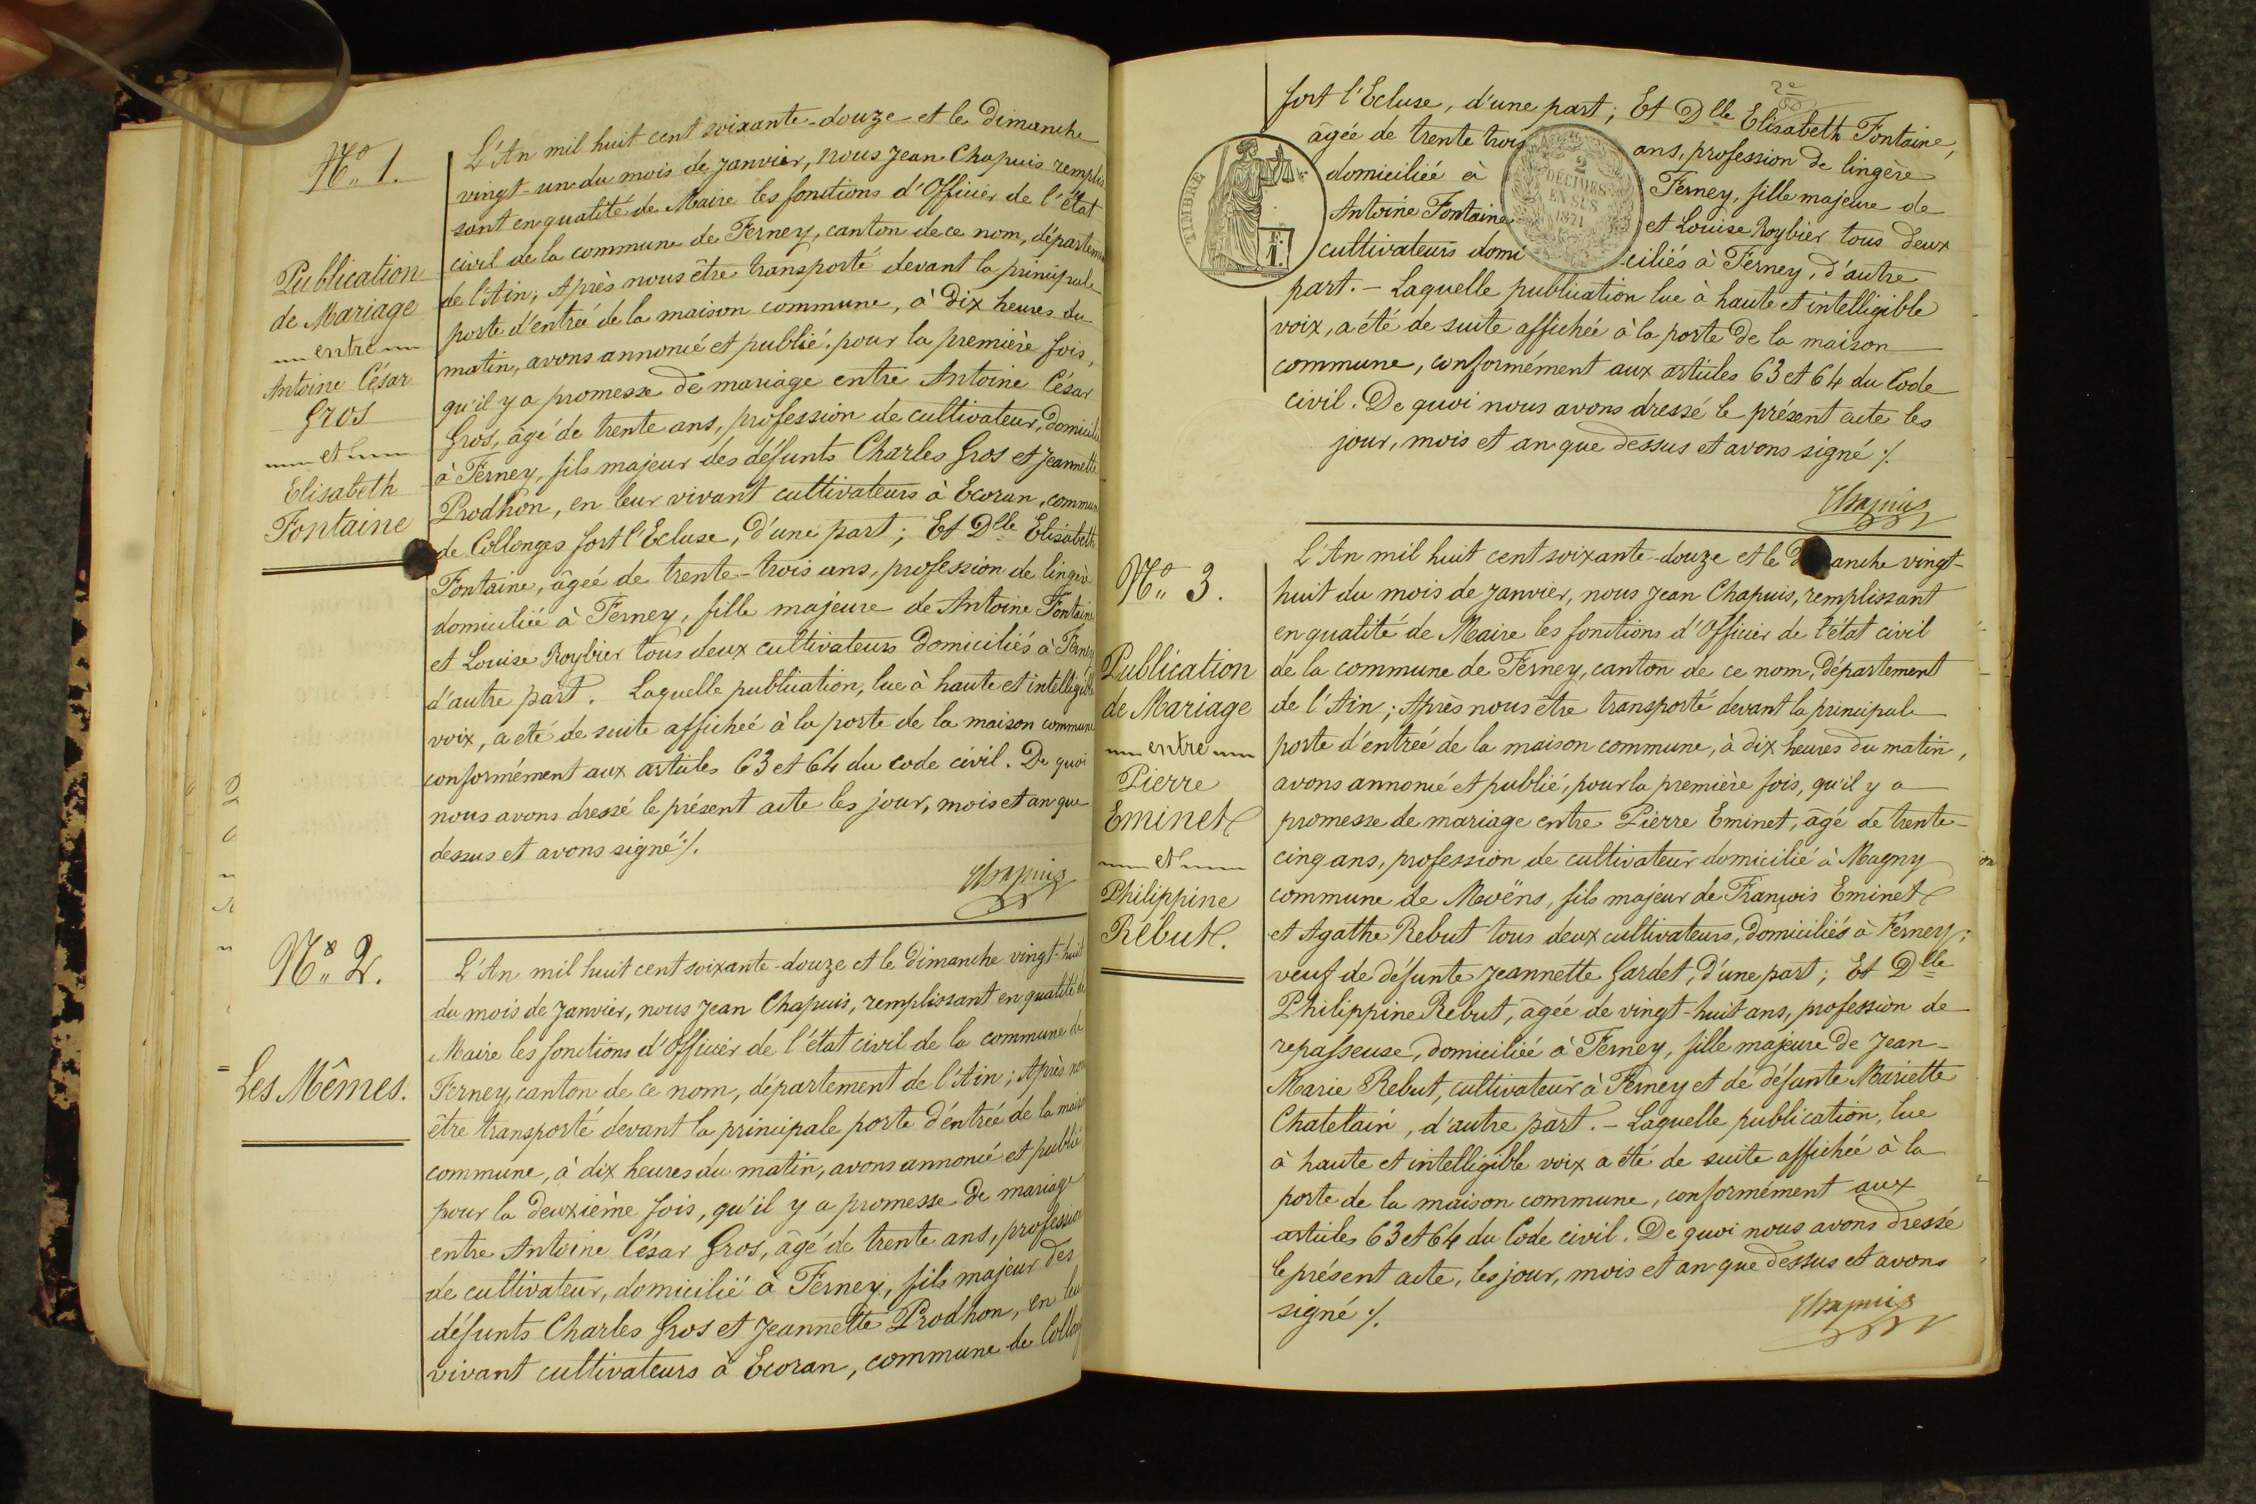 N.° 1.
Publication
de Mariage
entre
Antoine César
Gros
et
Elisabeth
Fontaine
L'An mil huit cent soixante-douze et le Dimanche
vingt-un du mois de Janvier, nous Jean Chapuis remplis
sant en qualité de Maire les fonctions d'Officier de l'état
civil de la commune de Ferney, canton de ce nom, départeme
de l'Ain; Après nous être transporté devant la principale
porte d'entrée de la maison commune, à Dix heures du
matin, avons annoncé et publié, pour la première fois,
qu'il y a promesse de mariage entre Antoine César
Gros, âgé de trente ans, profession de cultivateur, domicilié
à Ferney, fils majeur des défunts Charles Gros et Jeannette
Prodhon, en leur vivant cultivateurs à Ecoran, commun
de Collonges fort l'Ecluse, d'une part; Et Dlle Elisabeth
Fontaine, âgée de trente-trois ans, profession de lingère
domiciliée à Ferney, fille majeure de Antoine Fontaine
et Louise Roybier tous deux cultivateurs domiciliés à Ferney
d'autre part. Laquelle publication, lue à haute et intelligible
voix, a été de suite affichée à la porte de la maison commune
conformément aux articles 63 et 64 du code civil. De quoi
nous avons dressé le présent acte les jour, mois et an que
dessus et avons signé ./.
Chapuis
N.° 2.
Les Mêmes.
L'An mil huit cent soixante-douze et le Dimanche vingt-huit
du mois de Janvier, nous Jean Chapuis, remplissant en qualité de
Maire les fonctions d'Officier de l'état civil de la commune de
Ferney, canton de ce nom, département de l'Ain; Après nous
être transporté devant la principale porte d'entrée de la maison
commune, à dix heures du matin, avons annoncé et publié
pour la deuxième fois, qu'il y a promesse de mariage
entre Antoine César Gros, âgé de trente ans, profession
de cultivateur, domicilié à Ferney, fils majeur des
défunts Charles Gros et Jeannette Prodhon, en leu
vivant cultivateurs à Ecoran, commune de Collon
fort l'Ecluse, d'une part; Et Dlle Elisabeth Fontaine,
âgée de trente trois ans, profession de lingère
domiciliée à Ferney, fille majeure de
Antoine Fontaine et Louise Roybier tous deux
cultivateurs domiciliés à Ferney, d'autre
part. - Laquelle publication lue à haute et intelligible
voix, a été de suite affichée à la porte de la maison
commune, conformément aux articles 63 et 64 du Code
civil. De quoi nous avons dressé le présent acte les
jour, mois et an que dessus et avons signé ./.
Chapuis
TIMBRE
F.
1.
2
DÉCIMES
EN SUS
1871
N.° 3.
Publication
de Mariage
entre
Pierre
Eminet
et
Philippine
Rebut.
L'An mil huit cent soixante-douze et le D anche vingt-
huit du mois de Janvier, nous Jean Chapuis, remplissant
en qualité de Maire les fonctions d'Officier de l'état civil
de la commune de Ferney, canton de ce nom, département
de l'Ain; Après nous être transporté devant la principale
porte d'entrée de la maison commune, à dix heures du matin,
avons annoncé et publié, pour la première fois, qu'il y a
promesse de mariage entre Pierre Eminet, âgé de trente-
cinq ans, profession de cultivateur domicilié à Magny
commune de Moëns, fils majeur de François Eminet
et Agathe Rebut tous deux cultivateurs, domiciliés à Ferney;
veuf de défunte Jeannette Gardet, d'une part; Et Dlle
Philippine Rebut, âgée de vingt-huit ans, profession de
repasseuse, domiciliée à Ferney, fille majeure de Jean-
Marie Rebut, cultivateur à Ferney et de défunte Mariette
Chatelain, d'autre part. - Laquelle publication, lue
à haute et intelligible voix a été de suite affichée à la
porte de la maison commune, conformément aux
articles 63 et 64 du Code civil. De quoi nous avons dressé
le présent acte, les jour, mois et an que dessus et avons
signé ./.
Chapuis